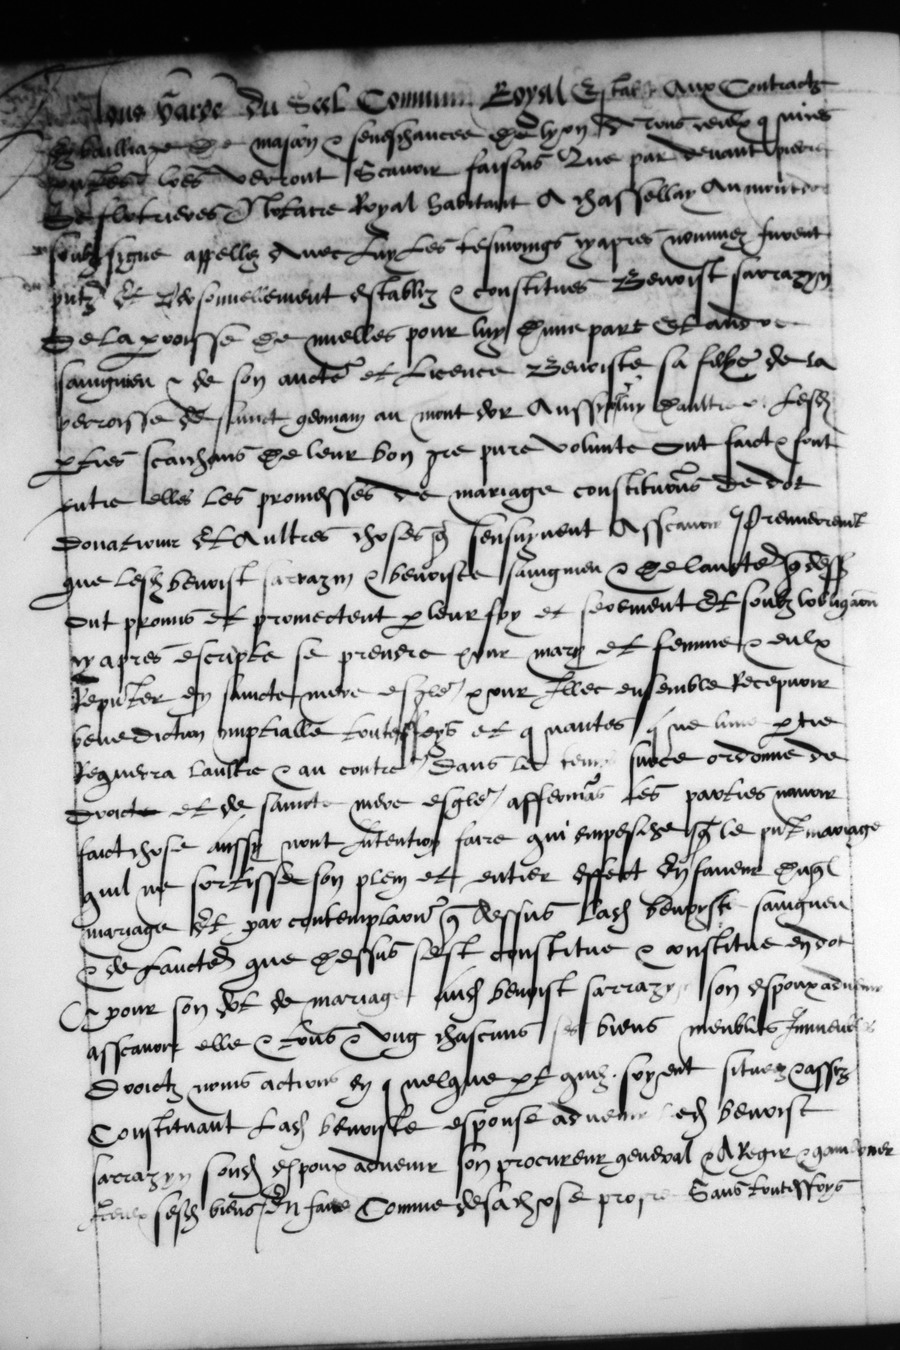 Nous garde du Seel Commun Royal Estably Aux Contractz
Es bailliage de mascon & seneschaucee de lyon A tous ceulx q verront
Scavoir faisons Que par devant pierre
Deflotrieres Notaire Royal habitant A chassellay Au montdor
soubzsigne appellez Avec Luy Les tesmoings cyapres nommez furent
pntz Et Personnellement establyz & constitues Benoist sarrazyn
De La paroisse de nuelles pour luy Dune part Et
sauignieu & de son aucte et Licence Benoiste sa fille de la
perroisse de sainct germain au mont dor Aussy pour luy daultre Lesd
pties scaichans De leur bon gre pure volunte Ont faict & font
entre elles Les promesses de mariage constitutions De dot
Donations Et Aultres choses q sensuyvent Asscavoir Premierement
que Lesd benoist sarrazin & benoiste sauignieu & De laucte q dess
Ont promis Et promectent p leur foy et serement Et soubz lobligaon
cy apres escripte se prendre pour mary et femme & eulx
Reputer en saincte mere esgle pour Illec ensemble Recepvoir
benediction nuptialle touteffoys et quantes que lune ptie
Requerra laultre & au contre Dans le temps sur ce ordonne de
Droicte et de saincte mere esgle affermans Les parties navoir
faict chose Aussy nont Intention faire qui empesche q le pnt mariage
quil ne sortisse son plein et entier effect En faveur duql
mariage Et par contemplation q dessus Lad benoiste sauignieu
& de Laucte que Dessus sest constitue & constitue en dot
& pour son dot de mariage Aud benoist sarrazyn son espoux advenir
asscavoir elle & tous & Ung chascuns ses biens meubles Immeubles
Droictz noms actions en quelque pt quilz soyent situez & assiz
Constituant Lad benoiste espouse advenir Led benoist
sarrazyn sond espoux advenir son procureur general & A Regir & gouverner
sesd biens En faire Comme de sa chose propre Sans touteffoys